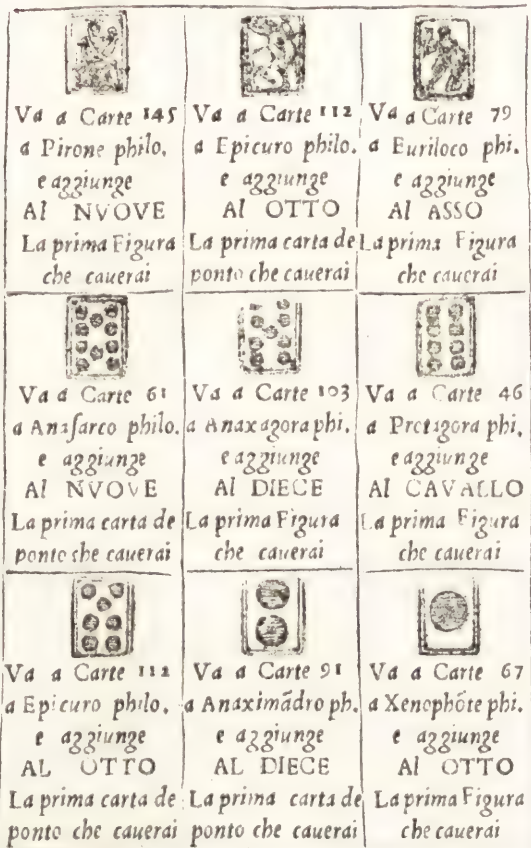 Va a Carte 145
a Pirone philo.
e aggiunge
Al NVOVE
La prima Figura
che cauerai
Va a Carte 112
a Epicuro philo.
e aggiunge
Al OTTO
La prima carta de
ponto che cauerai
Va a Carte 79
a Euriloco phi.
e aggiunge
Al ASSO
La prima Figura
che cauerai
Va a Carte 61
a Anasarco philo.
e aggiunge
Al NVOVE
La prima carta de
ponto che cauerai
Va a Carte 103
a Anaxagora phi.
e aggiunge
Al DIECE
La prima Figura
che cauerai
Va a Carte 46
a Protagora phi,
e aggiunge
Al CAVALLO
La prima Figura
che cauerai
Va a Carte 112
a Epicuro philo,
e aggiunge
AL OTTO
La prima carta de
ponto che cauerai
Va a Carte 91
a Anaximãdro ph.
e aggiunge
AL DIECE
La prima carta de
ponto che cauerai
Va a Carte 67
a Xenophõte phi.
e aggiunge
Al OTTO
La prima Figura
che cauerai